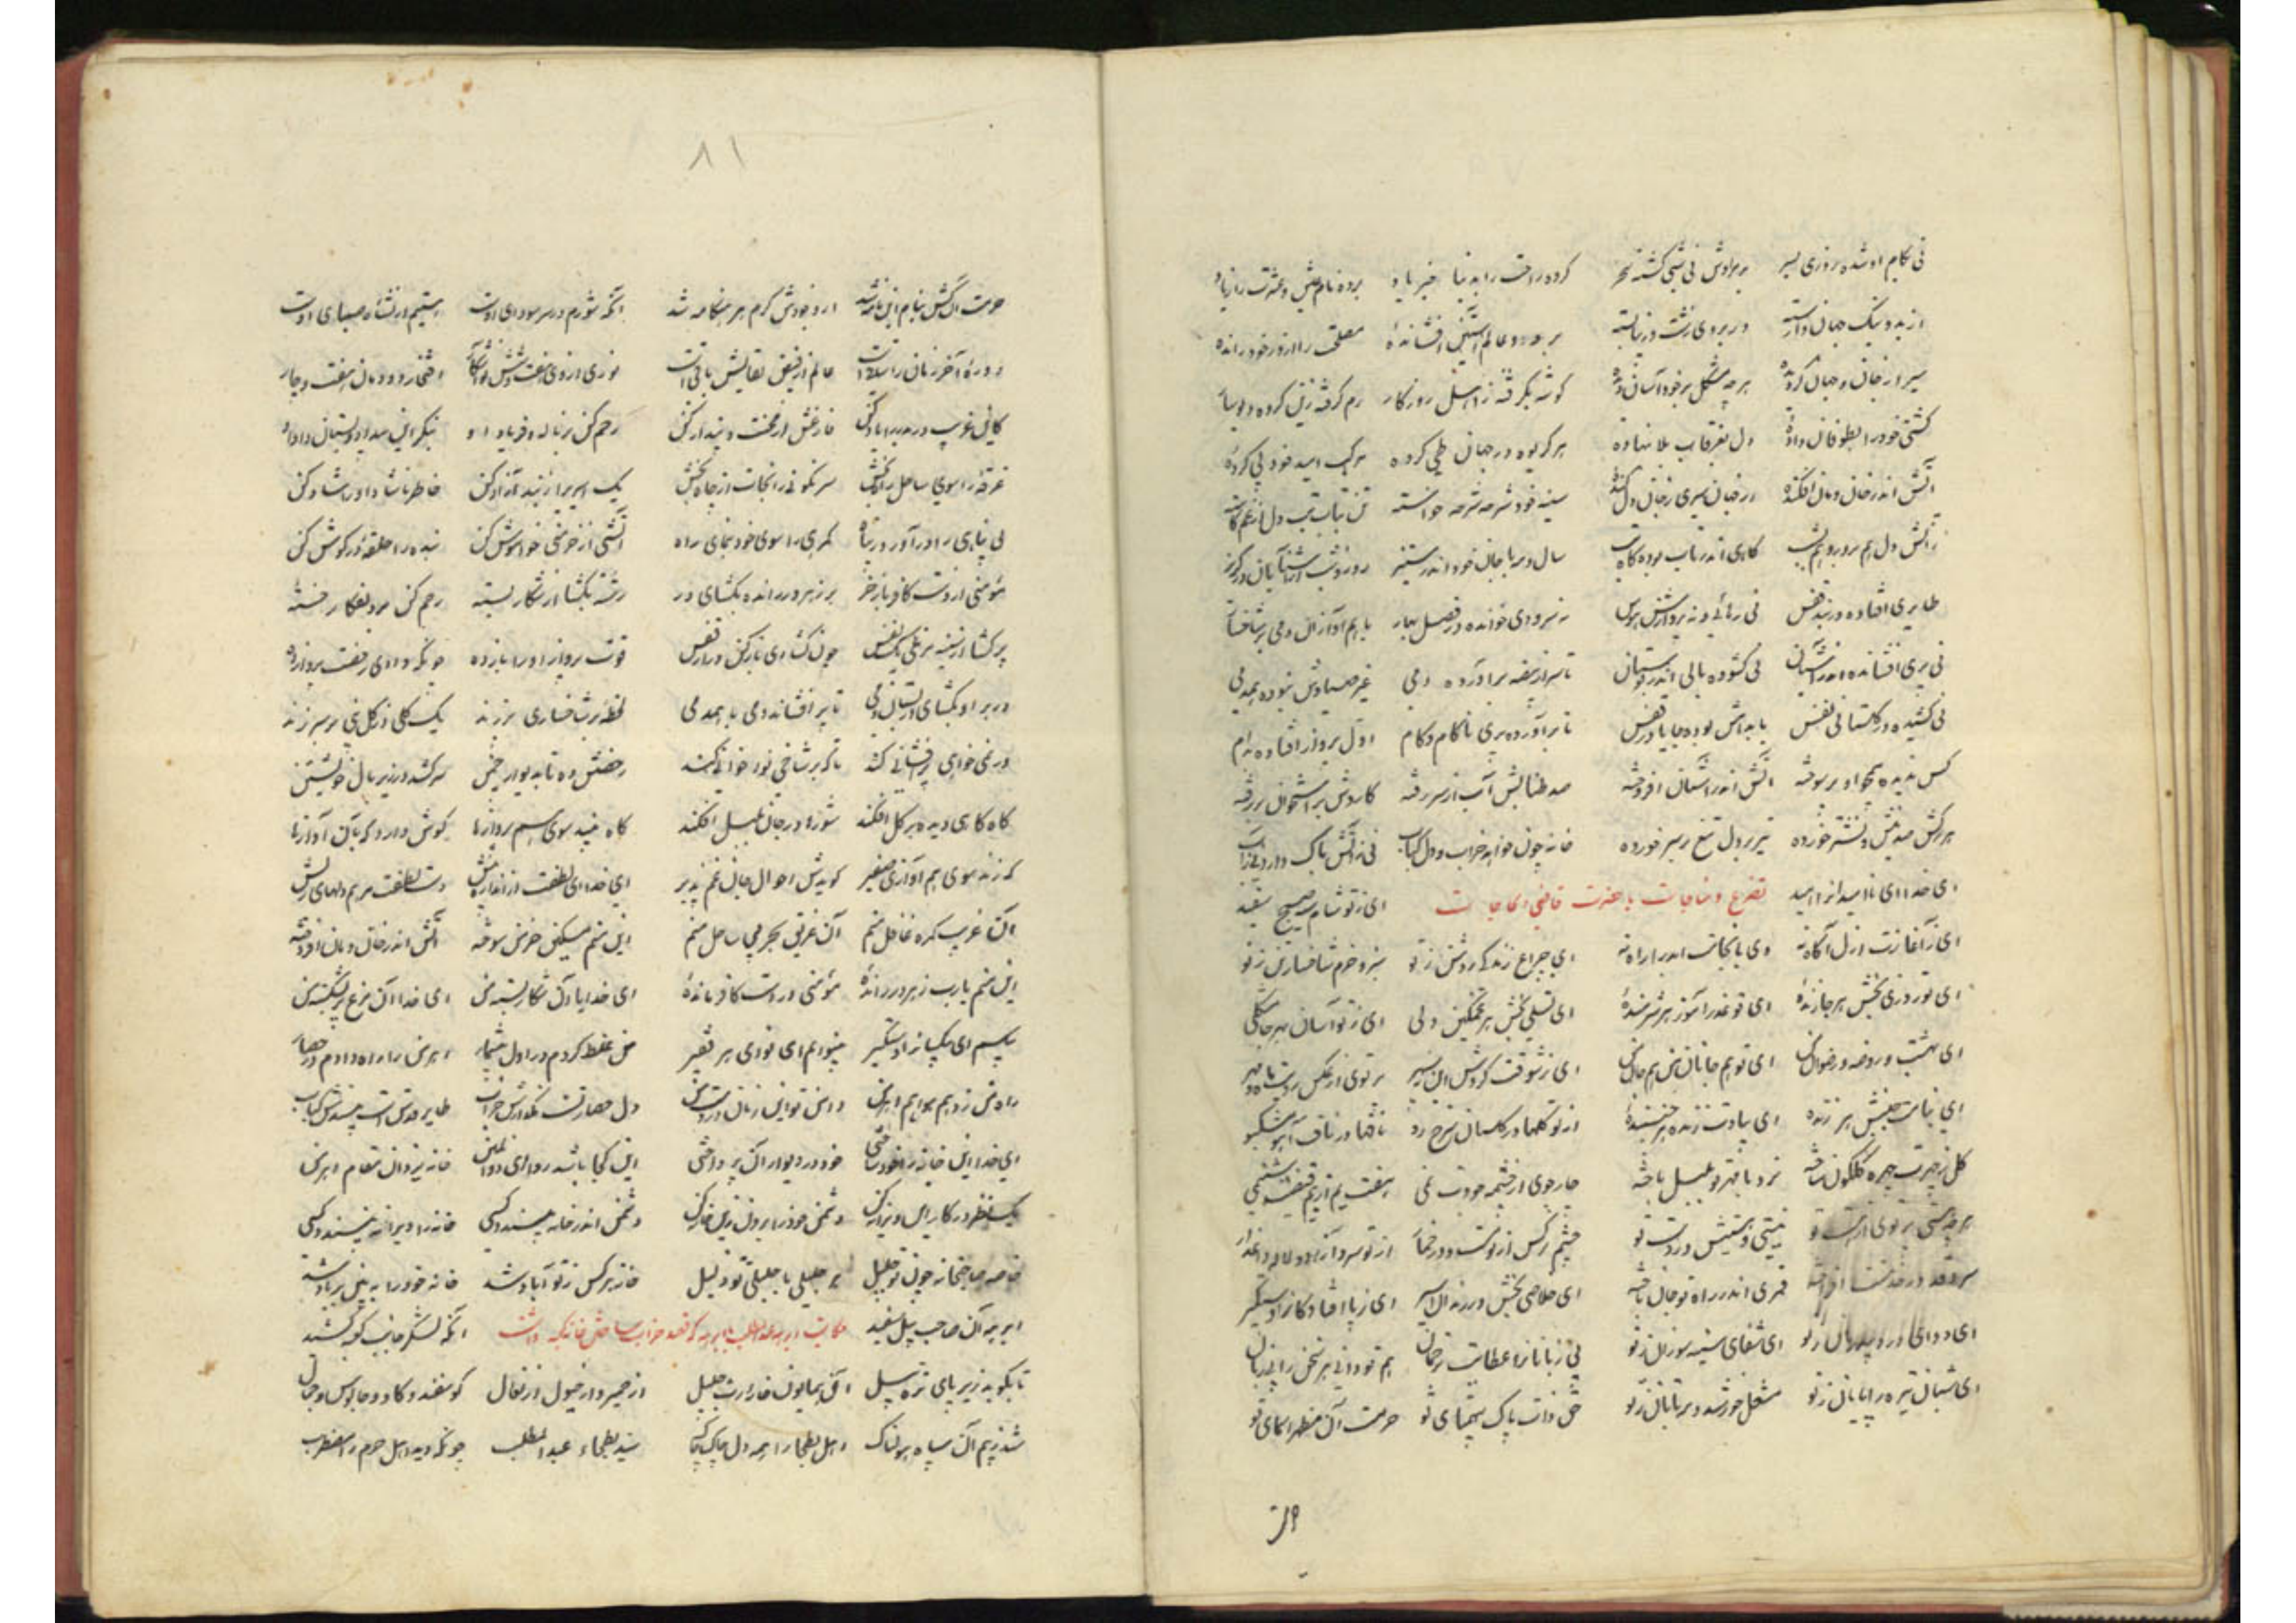 نی بکام او شده روزی بسر بر مرادش نی شبی گشته سحر کرده راحت را به دنیا خیرباد برده نام عیش و عشرت را ز یاد
از بد و نیک جهان وارسته در بروی زشت و زیبا بسته بر دو عالم آستین افشانده مصلحت را از در خود رانده
سیر از جان و جهان گردیده هر چه مشکل بر خود آسان دیده گوشه بگرفته ز اهل روزگار رم گرفته زین گروه
کشتی خود را بطوفان داده دل بغرقاب بلا نهاده هر گریوه در جهان طی کرده مرکب امید خود پی کرده
آتش اندر خان و مان افکنده از جهان سیری ز جان دل کنده سینه خود شرحه شرحه خواسته تن بتاب تب دل از غم کاسته
ز آتش دل هم بروز و هم بشب گاهی اندر تاب بوده گاه تب سال و مه با جان خود اندر ستیز روز و شب از آشنایان در گریز
طایری افتاده در بند قفس نی رهائی و نه پروازش هوس نه سرودی خوانده در فصل بهار با هم آوازان دمی بر شاخسار
نی پری افشانده اندر آشیان نی گشوده بالی اندر بوستان تا سر از بیضه برآورده دمی غیر صیادش نبوده همدمی
نی کشیده در گلستانی نفس با بدامش بوده جا یا در قفس تا برآورده پری ناکام و کام اول پرواز افتاده بدام
کس ندیده همچو او پر سوخته آتش اندر آشیان افروخته صد طنابش آب از سر رفته کاردش بر استخوان بر رفته
هر رگش صد نیش و نشتر خورده تیر بر دل تیغ بر سر خورده خانه چون خواهد خراب و دل کباب نی ز آتش باک دارد نی ز آب
ای خدا ای ناامیدان را امید تضرع و مناجات با حضرت قاضی الحاجات ای ز تو شام سیه صبح سفید
ای ز آغازت ازل آگاه نه وی بانجامت ابد را راه نه ای چراغ زندگی روشن ز تو سبز و خرم شاخسار تن ز تو
ای تو روزی بخش هر جا زنده ای تو عذرآموز هر شرمنده ای تسلی بخش هر غمگین دلی ای ز تو آسان بهر جا مشکلی
ای بهشت و روضه و رضوان من ای تو هم جانان من هم جان من ای ز شوقت گردش این نه سپهر پرتوی از عکس رویت ماه و مهر
ای بنامت جنبش هر زنده ای بیادت زنده هر جنبنده از تو گلها در گلستان سرخ رو نافها در ناف آهو مشکبو
گل ز چهرت چهره گلگون ساخته نرد با مهر تو بلبل باخته چار جوی از چشمه جودت نمی هفت یم از یم فیضت شبنمی
هر چه هستی پرتوی از هست تو نیستی و هستیش در دست تو چشم نرگس از تو مست و در خمار از تو سرو آزاد و لاله داغدار
سرو قد در خدمتت افراخته قمری اندر راه تو جان باخته ای خلاصی بخش در زندان اسیر ای ز پا افتادگان را دستگیر
ای دوای درد بیدرمان ز تو ای شفای سینه سوزان ز تو بی زبانان را عطایت ترجمان هم تو دانی هر سخن را بی زبان
ای شبان تیره را پایان ز تو مشعل خورشید و مه تابان ز تو حق ذات پاک بیهمتای تو حرمت آن مظهر اسمای تو
الت
۸۱
حرمت آن کش بنام این نامه شد از وجودش گرم هر هنگامه شد آنکه شورم در سر سودای اوست مستیم در نشاه صهبای اوست
دوره آخر زمان را ساقی است عالم از فیض بقایش باقی است
کاین غریب در بدر را یاد کن فارغش از محنت و بیداد کن رحم کن بر ناله و فریاد او
غرقه را سوی ساحل راه بخش سرنگونی را نجات از چاه بخش یک اسیری را ز بند آزاد کن خاطر ناشاد او را شاد کن
بی پناهی را درآور در پناه گمرهی را سوی خود بنمای راه آتشی از خوشخوئی خاموش کن بنده را حلقه در گوش کن
مؤمنی از دست کافر باز خر بر ز هر در رانده بگشای در رشته بگشا از شکار بسته رحم کن بر دلفکار خسته
پر گشا از سینه مرغی یک نفس چون گشادی باز کن در از قفس قوت پرواز او را باز ده چونکه دادی رخصت پرواز ده
در بر او بگشای دربستان دمی تا پر افشاند دمی با همدمی لحظه بر شاخساری پر زند یک گلی از گلبنی بر سر زند
ور نمی خواهی پر افشانی کند تا که بر شاخی نوا خوانی کند رخصتش ده تا بدیوار چمن سر کشد در زیر بال خویشتن
گاه گاهی دیده بر گل افکند شورها در جان بلبل افکند گاه بیند سوی رسم پروازها گوش دارد که بآن آوازها
که زند سوی هم آوازی صفیر گویدش احوال جان غم پذیر ای خدا ای لطفت از اندازه بیش دست لطفت مرهم دلهای ریش
آن غریب گمره غافل منم آن غریق بحر بی ساحل منم این منم مسکین خرمن سوخته آتش اندر خان و مان افروخته
این منم یارب ز هر در رانده مؤمنی در دست کافر مانده ای خدایا آن شکار بسته من ای خدا آن مرغ پر بشکسته من
بیکسم ای بیکسان را دستگیر بینوایم ای نوای هر فقیر من غلط کردم در اول بیشمار اهرمن را راه دادم در حصار
راه من زد هم هوا هم اهرمن دامن تو این زمان و دست من دل حصار تست مگذارش خراب طایر قدس است مپسندش کباب
ای خدا این خانه را خود ساختی خود در و دیوار آن پرداختی این کجا باشد روا ای ذوالمنن خانه یزدان مقام اهرمن
یک نظر در کار این ویرانه کن دشمن خود را برون زین خانه کن دشمن اندر خانه مپسندد کسی خانه را ویرانه مپسندد کسی
خاصه صاحبخانه چون تو جلیل هر جلیلی با جلیلی تو ذلیل خانه هر کس ز تو آباد شد خانه خود را به بین بر باد شد
ابرهه آن صاحب پیل سفید حکایت ابرهه و عبدالمطلب با ابرهه که قصد خراب ساختن خانه کعبه داشت آنکه لشکر جانب کعبه کشید
تا بکوبد زیر پای نره پیل آن همایون خانه رب جلیل از حمیر و از خیول و از بغال گوسفند و گاو و جاموس و جمال
شد ز بیم آن سپاه هولناک اهل بطحا را همه دل چاک چاک سید بطحاء عبدالمطلب چونکه دید اهل حرم را مضطرب